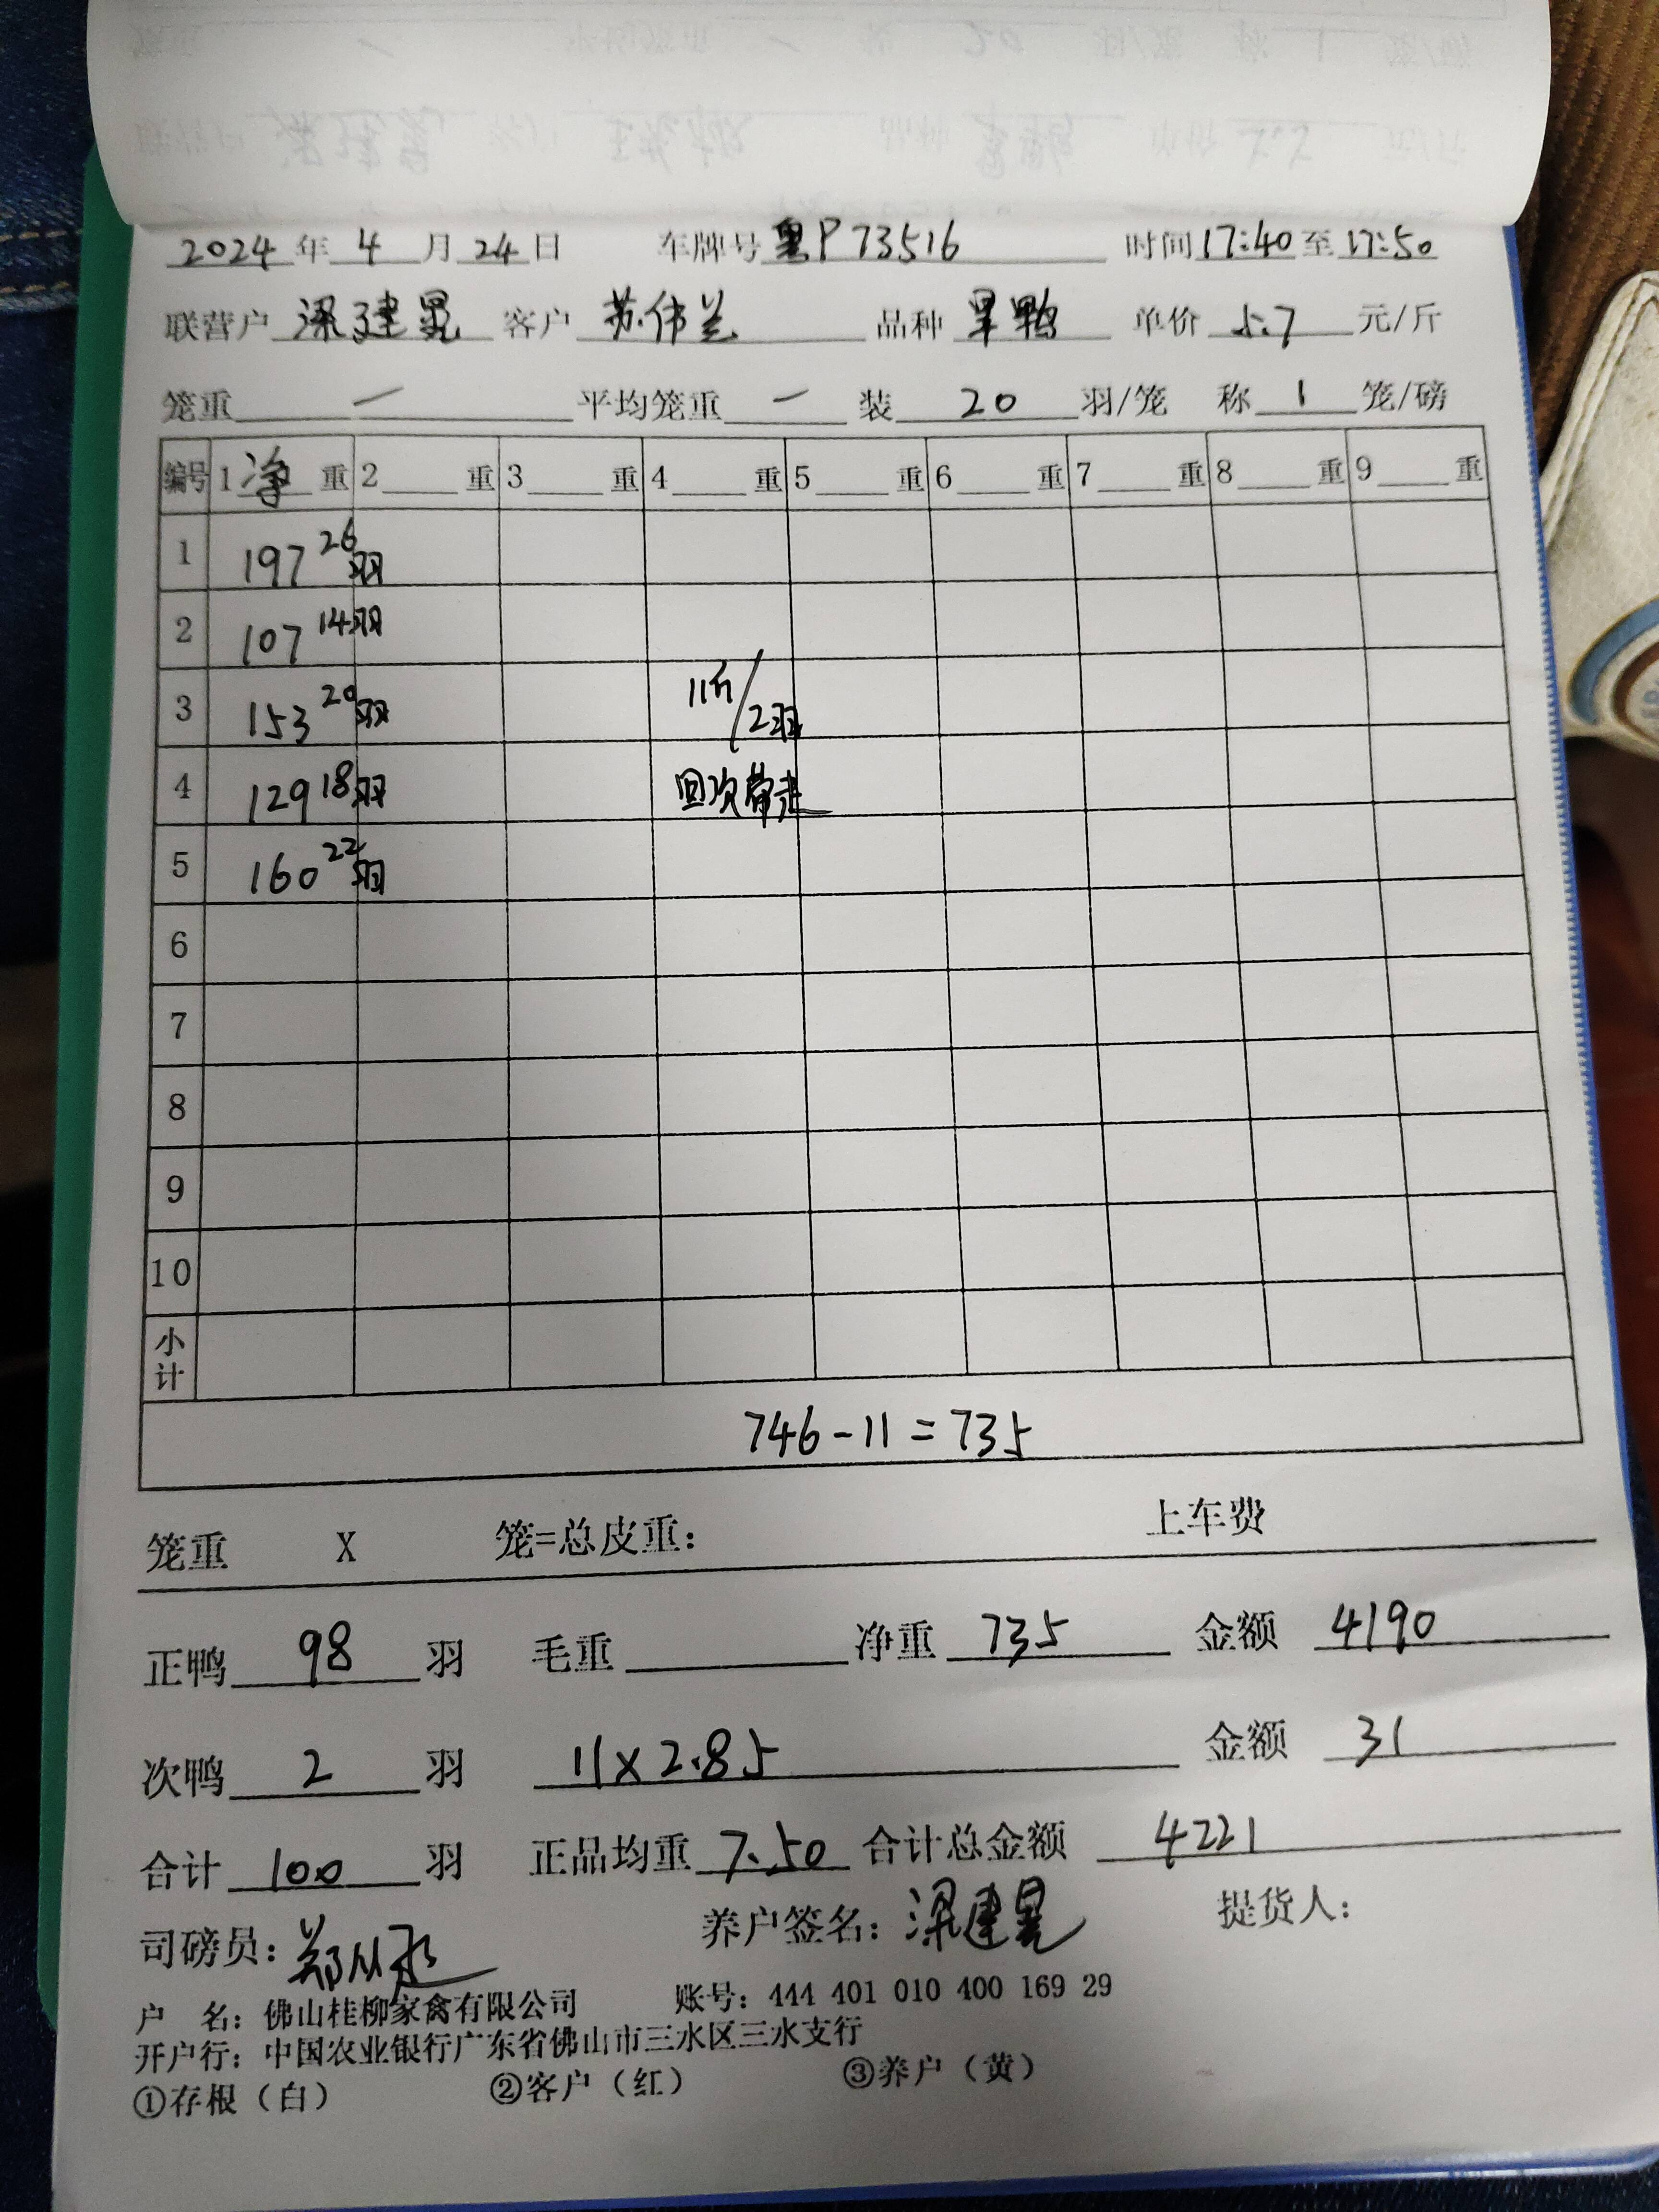 2024年4月24日 车牌号 粤P73516 时间17:40至17:50
联营户 梁建昆 客户 苏伟兰 品种 旱鸭 单价 5.7 元/斤
笼重 一 平均笼重 一 装 20 羽/笼 称 1 笼/磅
编号 1净重 2 重 3 重 4 重 5 重 6 重 7 重 8 重 9 重
1 197 26羽
2 107 14羽
3 153 20羽 11斤/2羽
4 129 18羽 回次带走
5 160 22羽
6
7
8
9
10
小计
746-11=735
笼重 X 笼=总皮重: 上车费
正鸭 98 羽 毛重 净重 735 金额 4190
次鸭 2 羽 11x2.85 金额 31
合计 100 羽 正品均重 7.50 合计总金额 4221
司磅员: 郑 养户签名: 梁建昆 提货人:
户 名: 佛山桂柳家禽有限公司 账号: 444 401 010 400 169 29
开户行: 中国农业银行广东省佛山市三水区三水支行
①存根（白） ②客户（红） ③养户（黄）